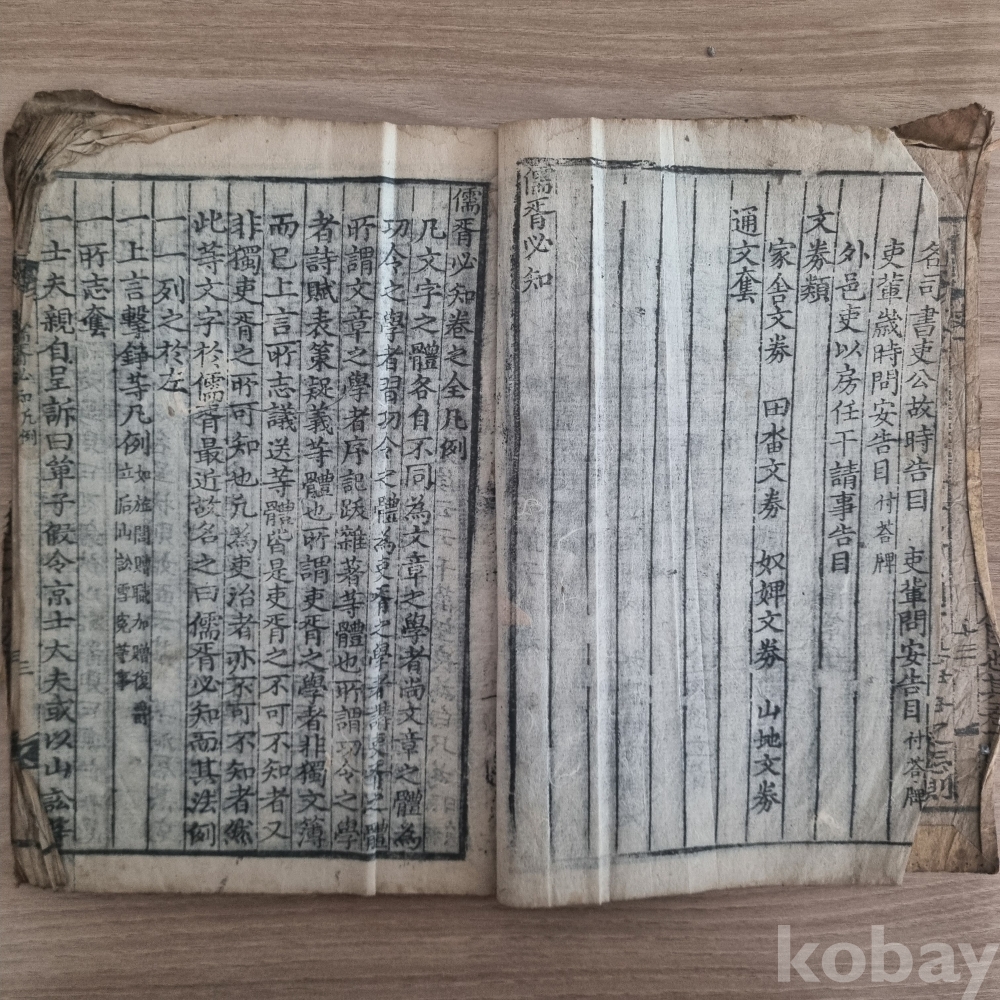 各司書吏公故時告目　吏輩問安告目 付答牌
吏輩歲時問安告目 付答牌
外邑吏以房任干請事告目
文券類
家舍文券　田畓文券　奴婢文券　山地文券
通文套
儒胥必知
儒胥必知卷之全凡例
凡文字之體各自不同為文章之學者尚文章之體為
功令之學者習功令之體為吏胥之學者講吏胥之體
所謂文章之學者序記跋雜著等體也所謂功令之學
者詩賦表策疑義等體也所謂吏胥之學者非獨文簿
而已上言所志議送等體皆是吏胥之不可不知者又
非獨吏胥之所可知也凡為吏治者亦不可不知者然
此等文字於儒胥最近故名之曰儒胥必知而其法例
一一列之於左
一上言擊錚等凡例 如旌閭贈職加贈復
立后山訟雪冤等事
一所志套
一士夫親自呈訴曰單子假令京士大夫或以山訟等
凡例
三
kobay